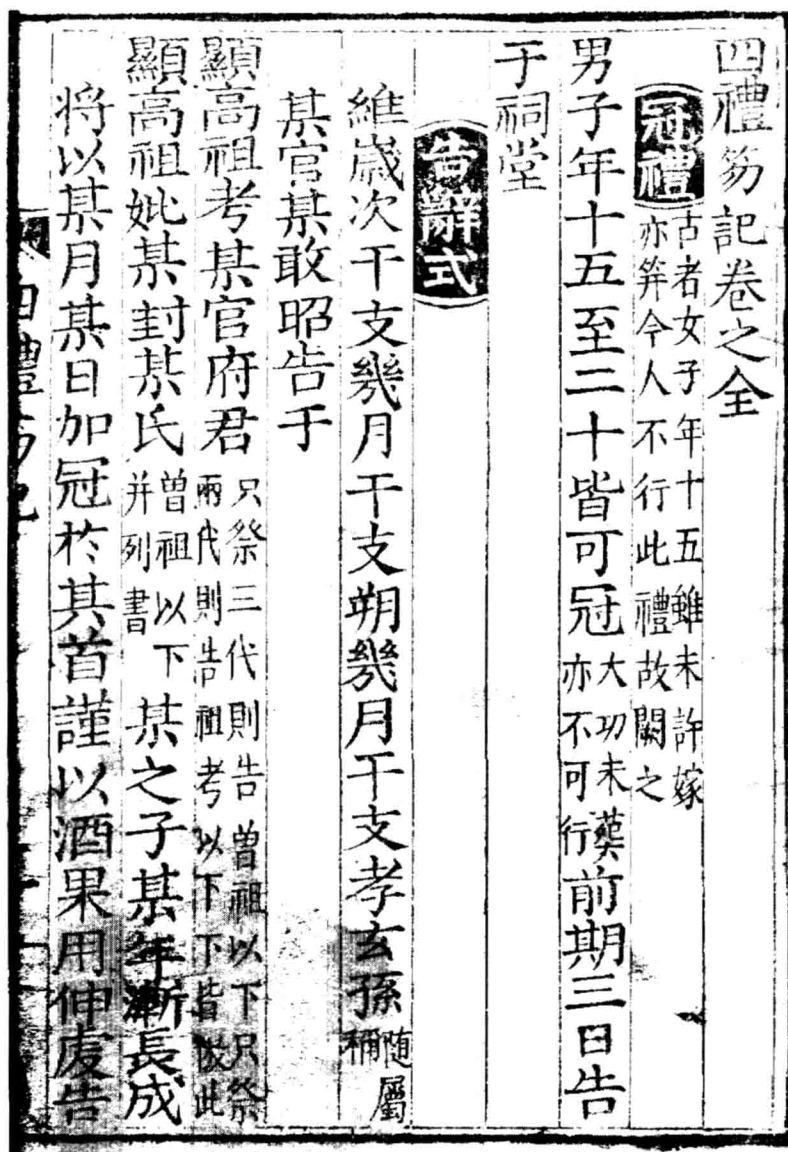 四禮笏記卷之全
冠禮 古者女子年十五雖未許嫁亦笄今人不行此禮故闕之
男子年十五至二十皆可冠 大功未葬亦不可行 前期三日告
于祠堂
告辭式
維歲次干支幾月干支朔幾月干支孝玄孫 隨屬稱
某官某敢昭告于
顯高祖考某官府君 只祭三代則告曾祖以下只祭兩代則告祖考以下下皆倣此
顯高祖妣某封某氏 曾祖以下并列書 某之子某年漸長成
將以某月某日加冠於其首謹以酒果用伸虔告
四禮笏記